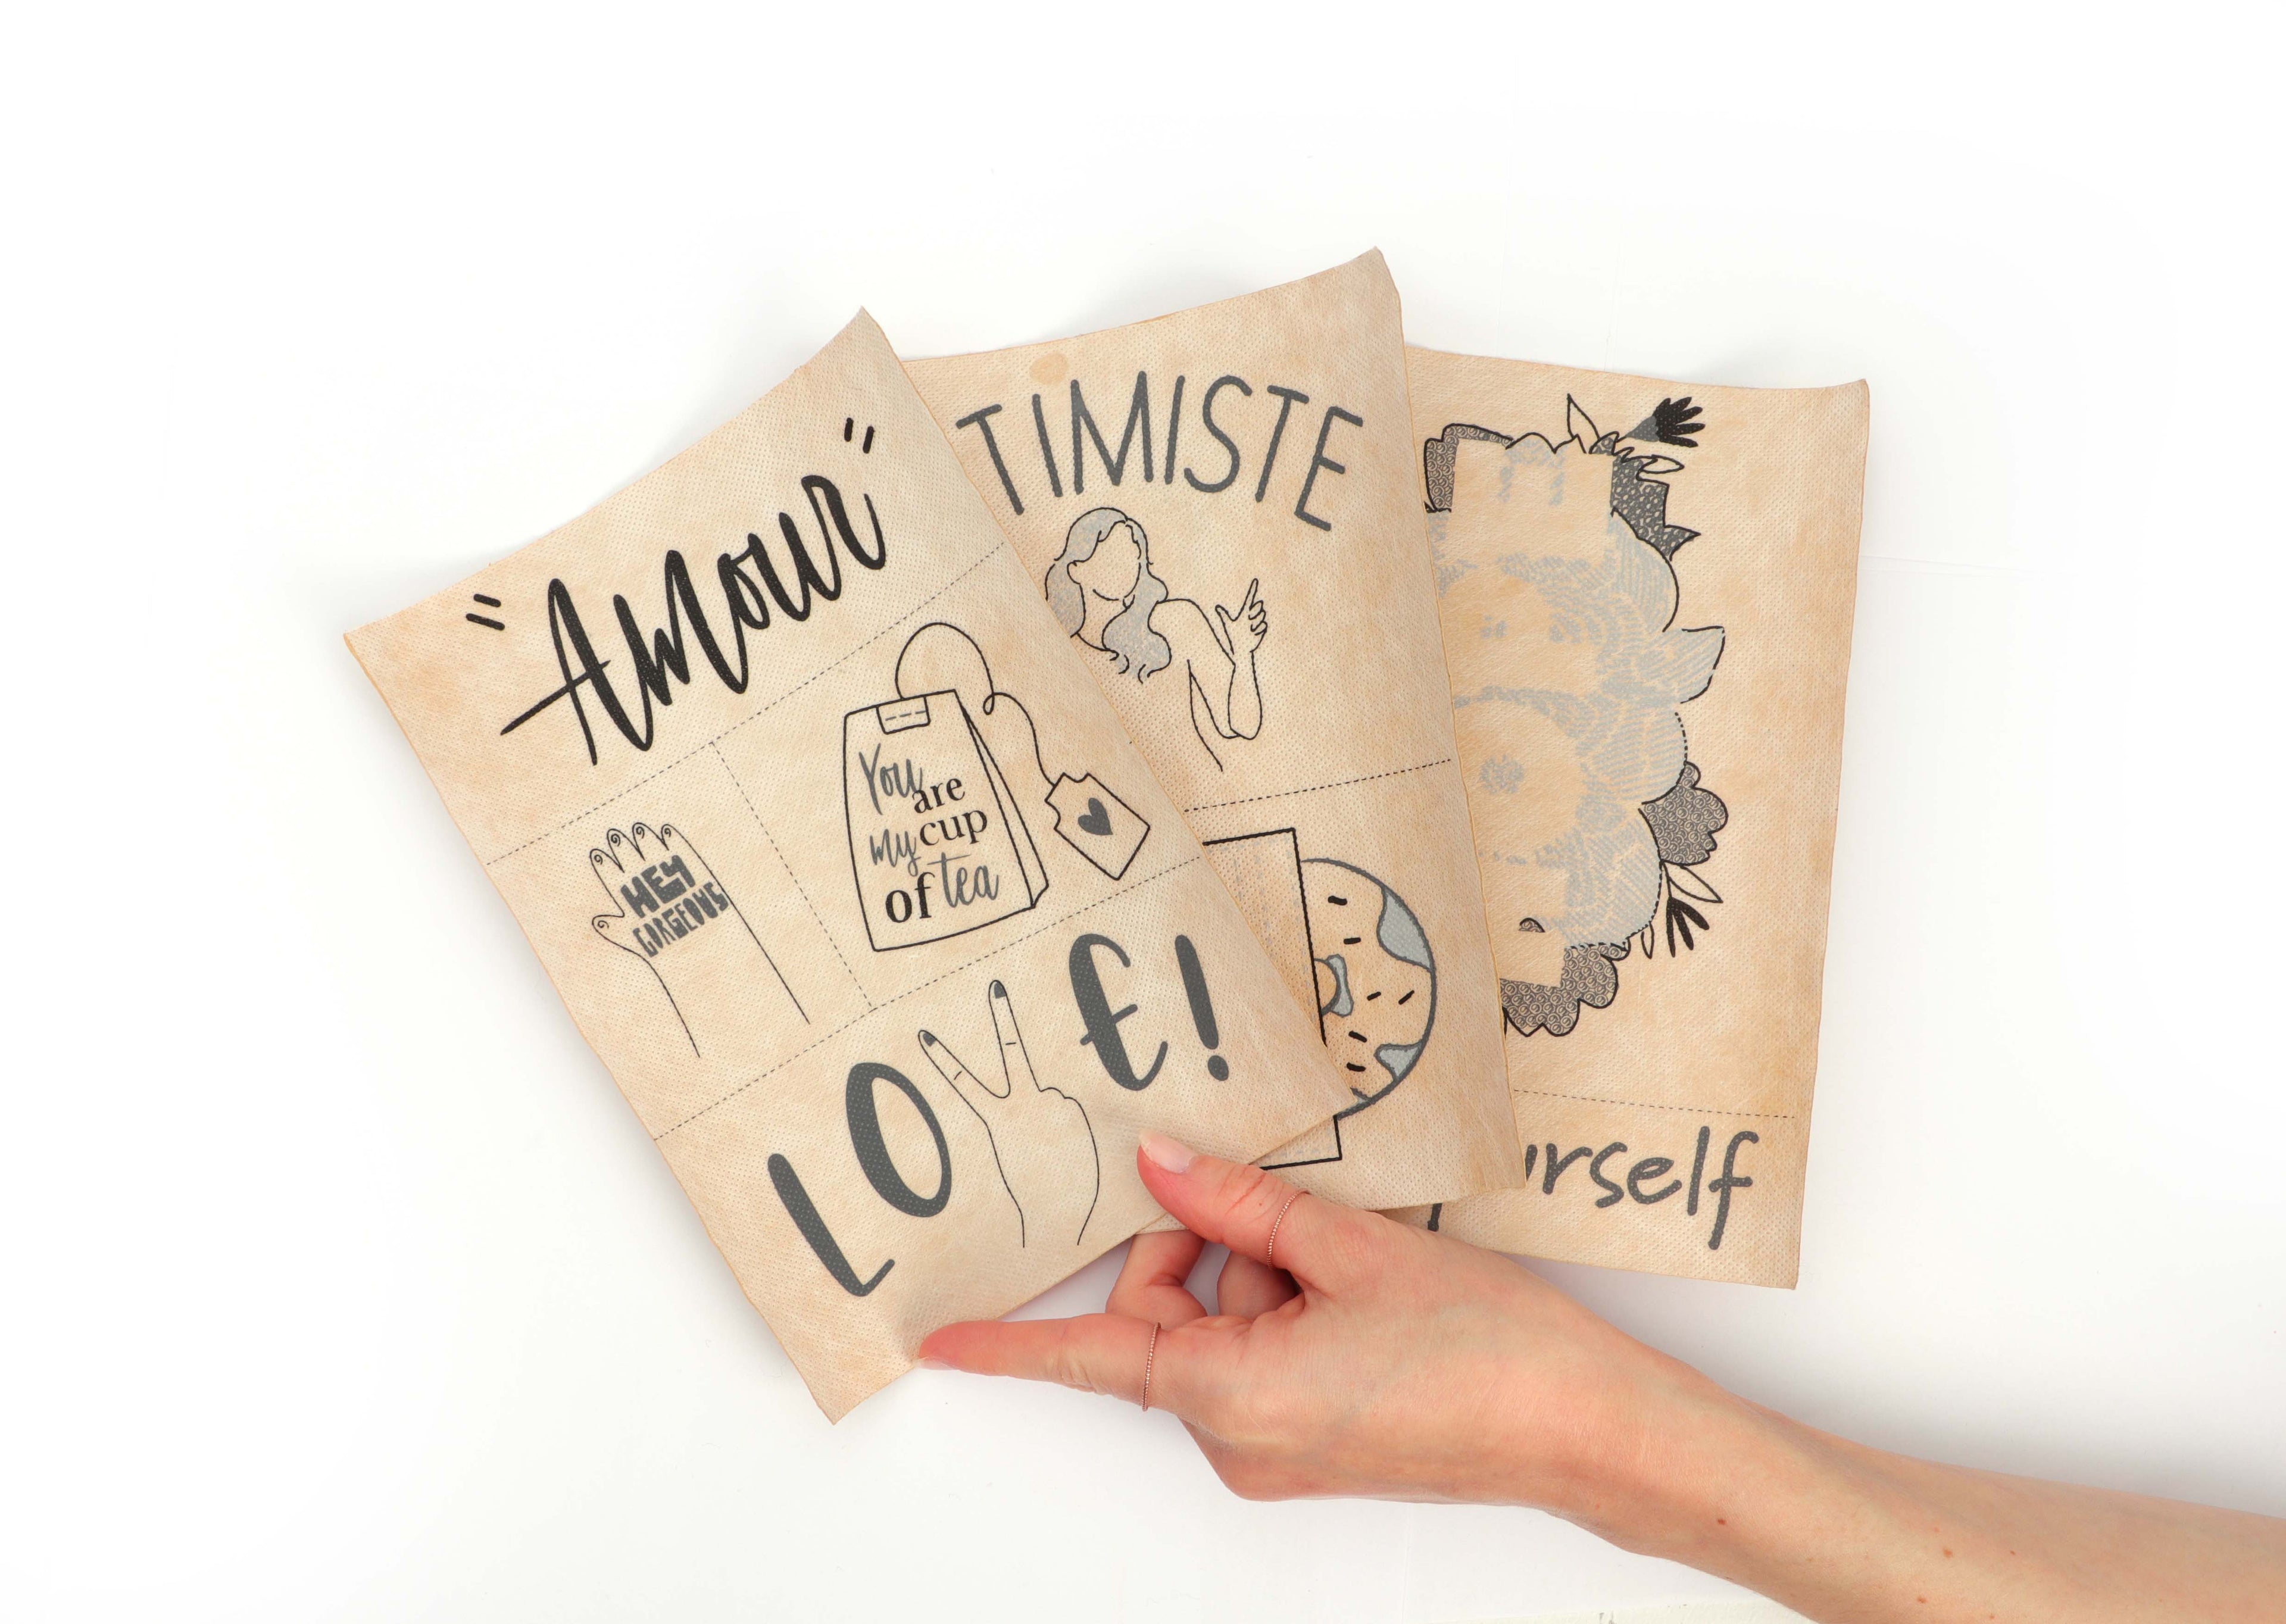 "Amour"
HEY
GORGEOUS
You are
my cup
of tea
LOVE!
TIMISTE
urself